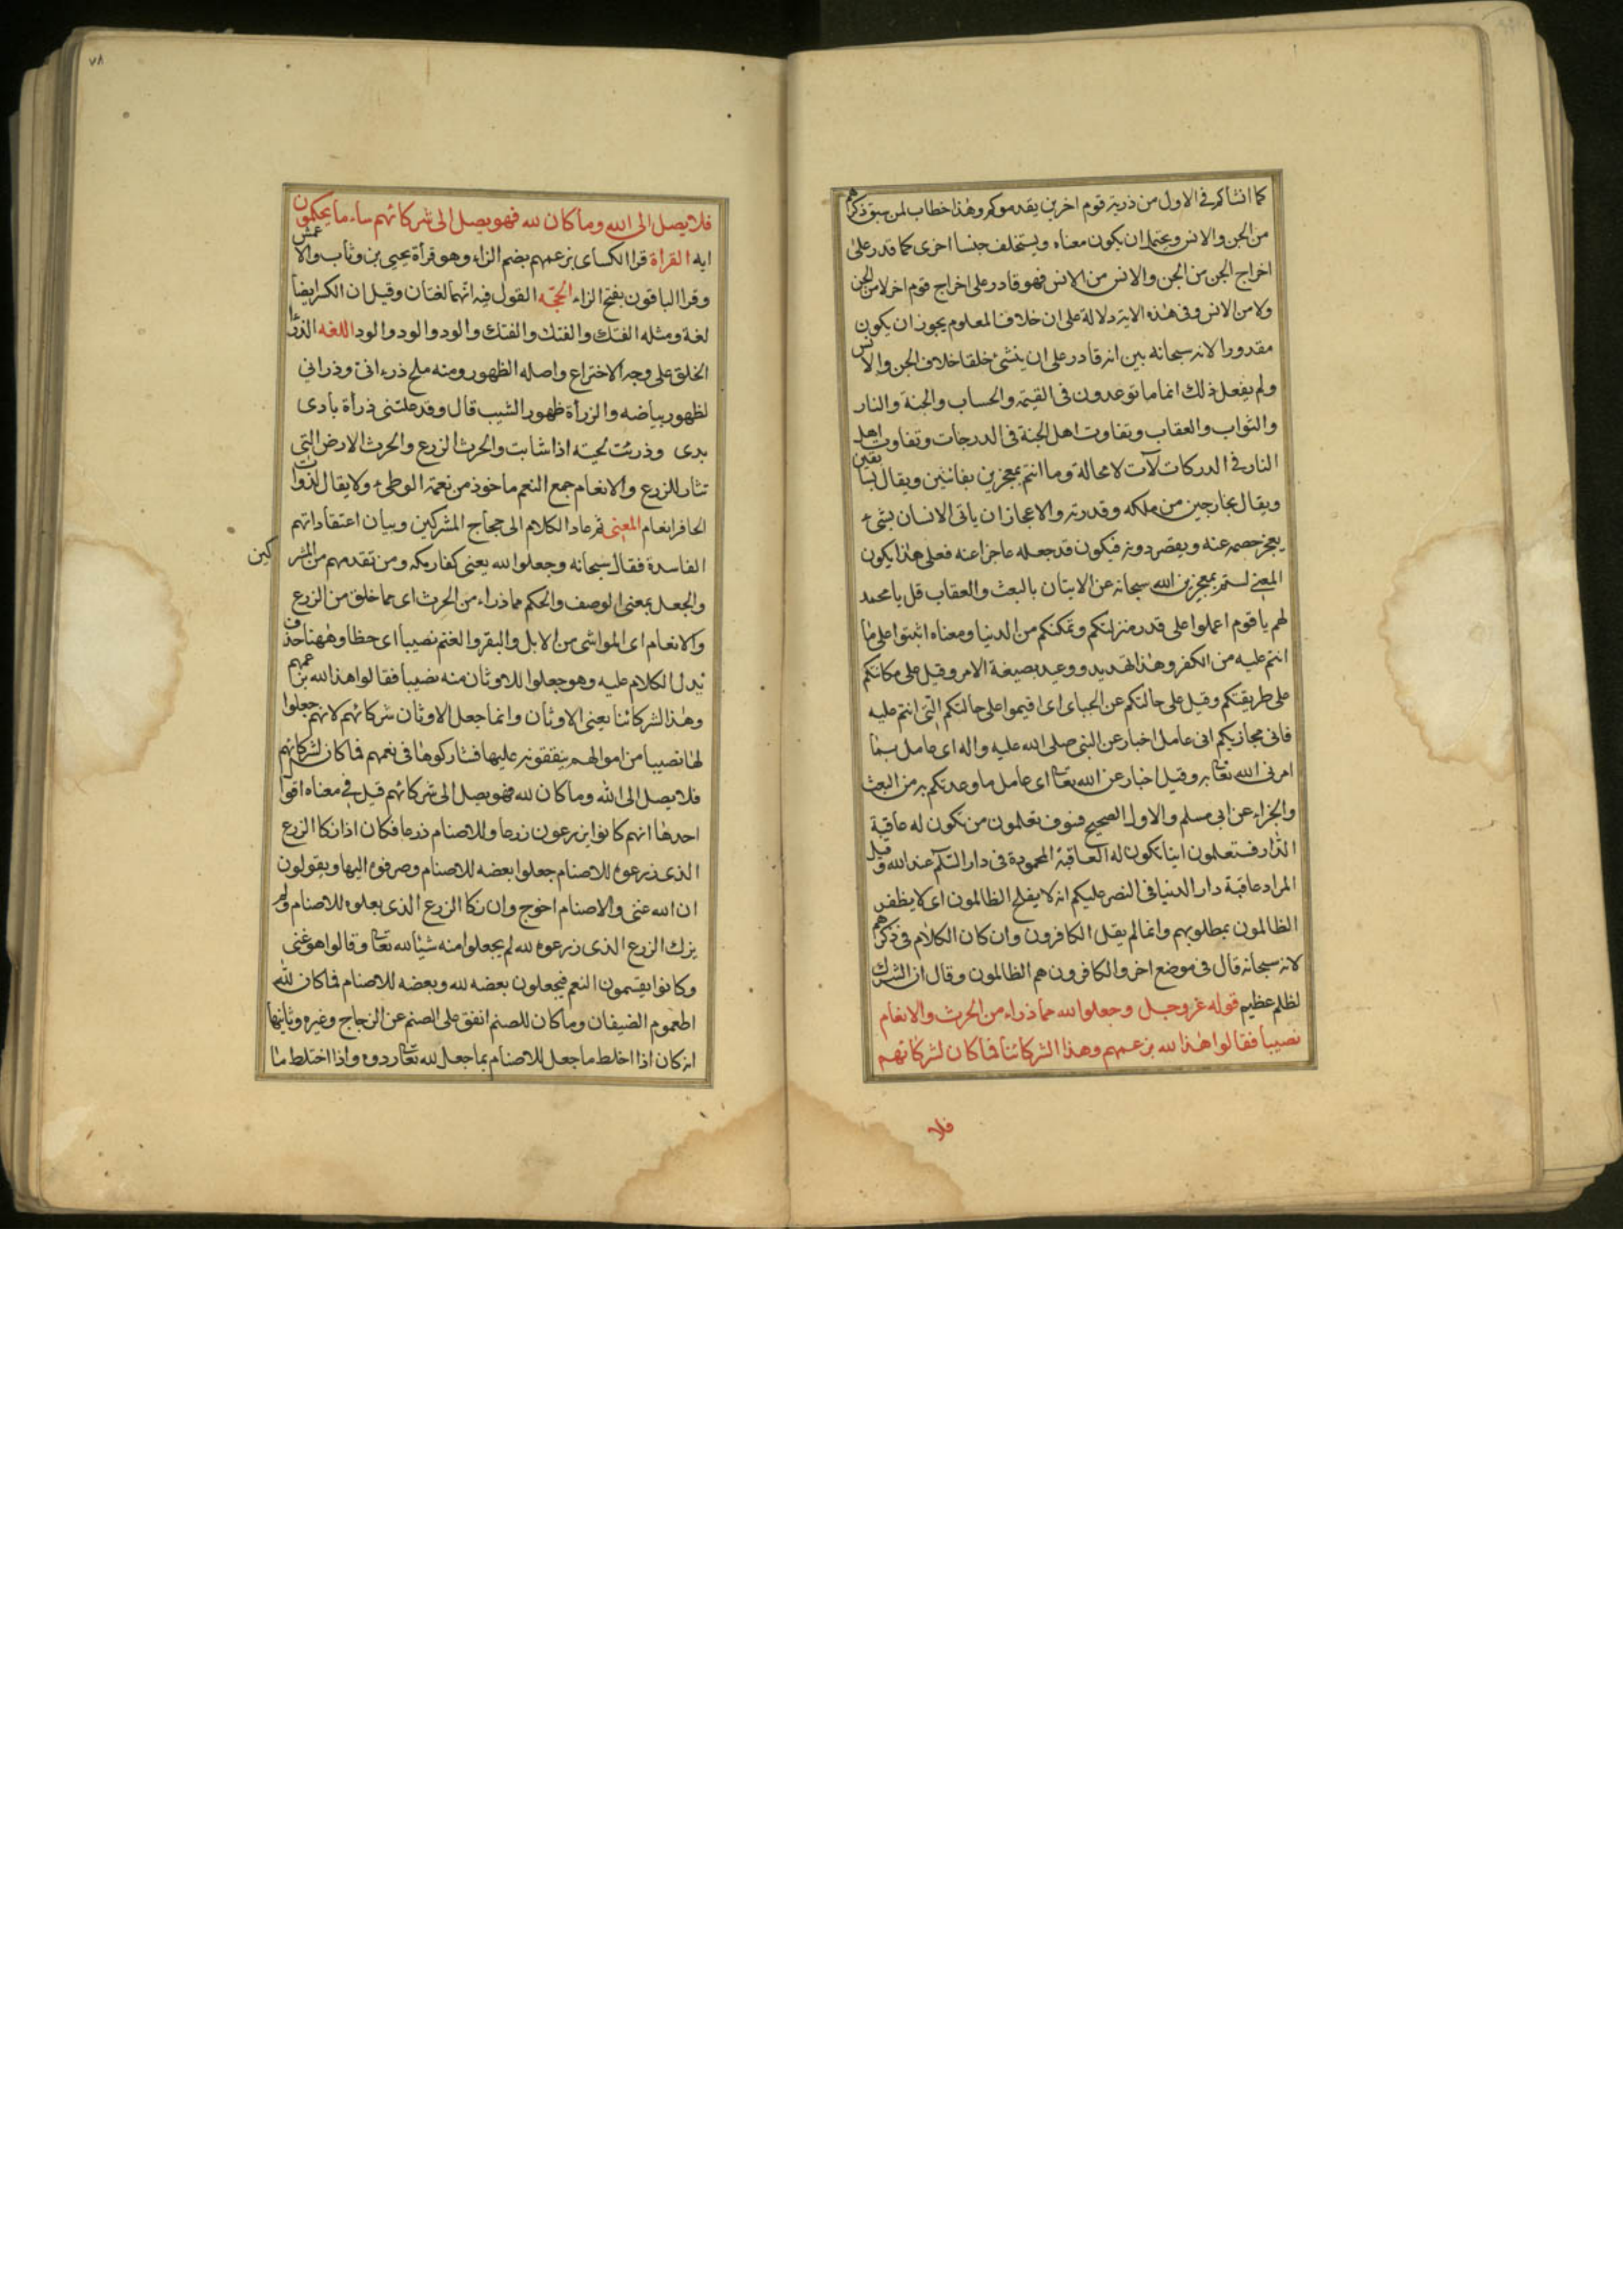 كما انشاكم فى الاول من ذرية قوم اخرين يقدموكم وهذا خطاب لمن سبق ذكرهم
من الجن والانس ويحتمل ان يكون معناه ويستخلف جنسا اخرى كما قدر على
اخراج الجن من الجن والانس من الانس فهو قادر على اخراج قوم اخر لا من الجن
ولا من الانس وفى هذه الاية دلالة على ان خلاف المعلوم يجوز ان يكون
مقدورا لانه سبحانه بين انه قادر على ان ينشئ خلقا خلاف الجن والانس
ولم يفعل ذلك انما ما توعدون فى القيمة والحساب والجنة والنار
والثواب والعقاب وتفاوت اهل الجنة فى الدرجات وتفاوت اهل
النار فى الدركات لآت لا محالة وما انتم بمعجزين بفائتين ويقال بسابقين
ويقال بخارجين من ملكه وقدرته والاعجاز ان ياتى الانسان بشىء
يعجز خصمه عنه ويقصر دونه فيكون قد جعله عاجزا عنه فعلى هذا يكون
المعنى لستم بمعجزين الله سبحانه عن الاتيان بالبعث والعقاب قل يا محمد
لهم يا قوم اعملوا على قدر منزلتكم وتمكنكم من الدنيا ومعناه اثبتوا على ما
انتم عليه من الكفر وهذا تهديد ووعيد بصيغة الامر وقيل على مكانتكم
على طريقتكم وقيل على حالتكم عن الجباى اى اقيموا على حالتكم التى انتم عليه
فانى مجازيكم انى عامل اخبار عن النبى صلى الله عليه واله اى عامل بما
امرنى الله تعالى به وقيل اخبار عن الله تعالى اى عامل ما وعدتكم به من البعث
والجزاء عن ابى مسلم والاول الصحيح فسوف تعلمون من تكون له عاقبة
الدار فستعلمون اينا تكون له العاقبة المحمودة فى دار السلام عند الله وقيل
المراد عاقبة دار الدنيا فى النصر عليكم انه لا يفلح الظالمون اى لا يظفر
الظالمون بمطلوبهم وانما لم يقل الكافرون وان كان الكلام فى ذكرهم
لانه سبحانه قال فى موضع اخر والكافرون هم الظالمون وقال ان الشرك
لظلم عظيم قوله عز وجل وجعلوا لله مما ذراء من الحرث والانعام
نصيبا فقالوا هذا لله بزعمهم وهذا لشركائنا فما كان لشركائهم
فلا
٧٨
فلا يصل الى الله وما كان لله فهو يصل الى شركائهم ساء ما يحكمون
ايه القراة قرا الكساى بزعمهم بضم الزاء وهو قرأة يحيى بن وثاب والاعمش
وقرا الباقون بفتح الزاء الحجة القول فيه انهما لغتان وقيل ان الكسر ايضا
لغة ومثله الفتك والفتك والفتك والود والود والود اللغه الذرأ
الخلق على وجه الاختراع واصله الظهور ومنه ملح ذرءانى وذرانى
لظهور بياضه والزرأة ظهور الشيب قال وقد علتنى ذرأة بادى
بدى وذرئت لحيته اذا شابت والحرث الزرع والحرث الارض التى
تثار للزرع والانعام جمع النعم ماخوذ من نعمة الوطىء ولا يقال لذوات
الحافر انعام المعنى ثم عاد الكلام الى حجاج المشركين وبيان اعتقاداتهم
الفاسدة فقال سبحانه وجعلوا لله يعنى كفار مكه ومن تقدمهم من المشركين
والجعل بمعنى الوصف والحكم مما ذراء من الحرث اى مما خلق من الزرع
والانعام اى المواشى من الابل والبقر والغنم نصيبا اى حظا وههنا حذف
يدل الكلام عليه وهو جعلوا للاوثان منه نصيبا فقالوا هذا لله بزعمهم
وهذا لشركائنا يعنى الاوثان وانما جعل الاوثان شركائهم لانهم جعلوا
لها نصيبا من اموالهم ينفقونه عليها فشاركوها فى نعمهم فما كان لشركائهم
فلا يصل الى الله وما كان لله فهو يصل الى شركائهم قيل فى معناه اقوا
احدها انهم كانوا يزرعون زرعا وللاصنام زرعا فكان اذا زكا الزرع
الذى زرعوه للاصنام جعلوا بعضه للاصنام وصرفوه اليها ويقولون
ان الله غنى والاصنام احوج وان زكا الزرع الذى جعلوه للاصنام ولم
يزك الزرع الذى زرعوه لله لم يجعلوا منه شيئا لله تعالى وقالوا هو غنى
وكانوا يقسمون النعم فيجعلون بعضه لله وبعضه للاصنام فما كان لله
اطعموه الضيفان وما كان للصنم انفق على الصنم عن الزجاج وغيره وثانيها
انه كان اذا اختلط ما جعل للاصنام بما جعل لله تعالى ردوه واذا اختلط ما